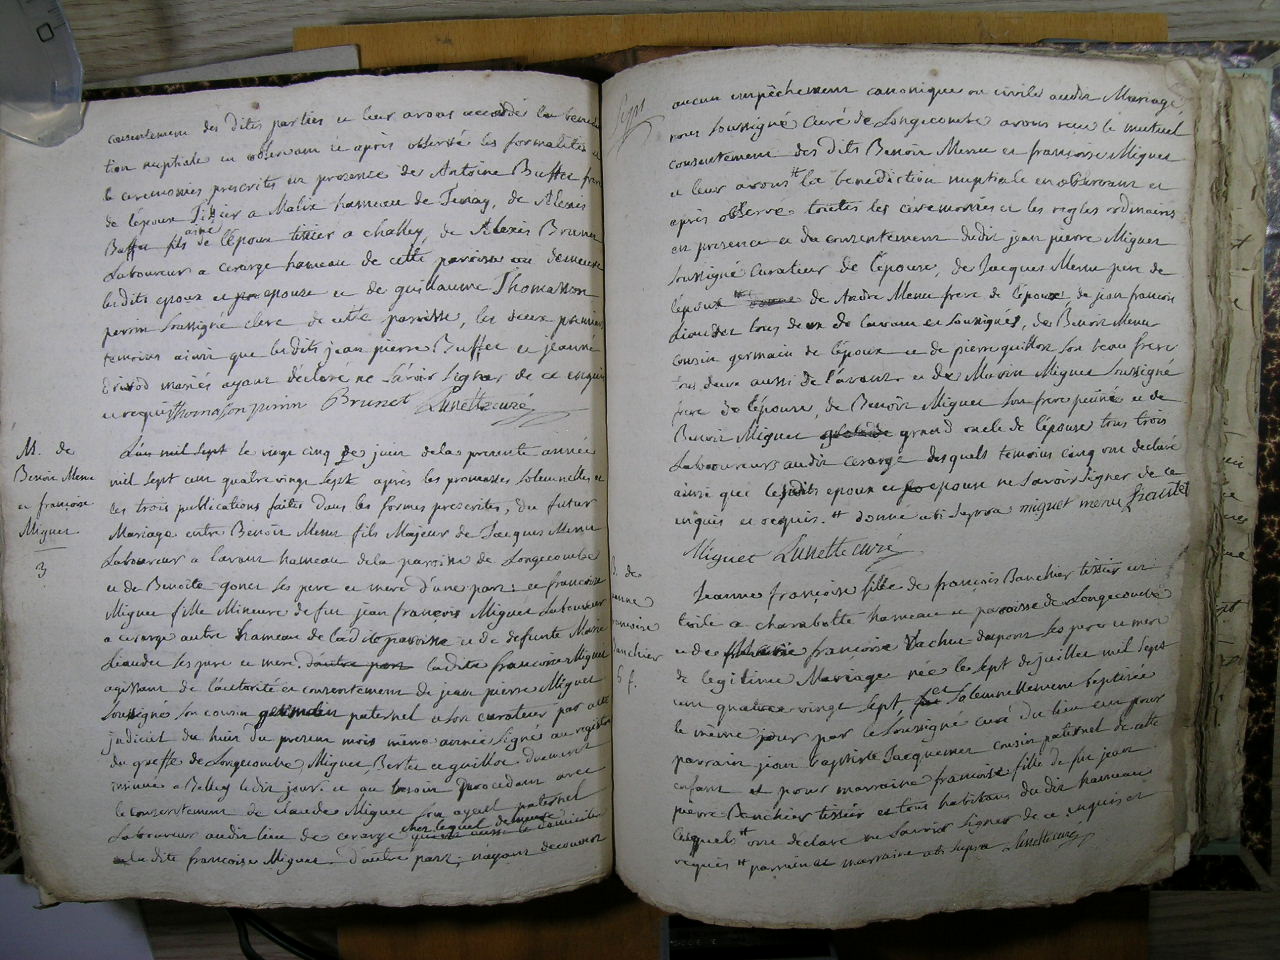 consentement des dites parties et leur avons accordé la benedic
tion nuptiale en observant et après observé les formalités et
les ceremonies prescrites en presence de Antoine Buffet frere
de l'époux Tissier a Malix hameau de de Alexis
Buffet fils ainé de l'époux tissier a challey, de Alexis Brunet
Laboureur a cerarge hameau de cette paroisse ou demeure
lesdits epoux et epouse et de guillaume Thomasson
perrin soussigné clerc de cette paroisse, les deux premiers
temoins ainsi que lesdits jean pierre Buffet et jeanne
mariés ayant déclaré ne savoir signer de ce enquis
et requis Thomasson perrin Brunet Lunette curé
M. de
Benoit Menu
et françoise
Miguet
3
L'an mil sept le vingt cinq de juin de la presente année
mil sept cent quatre vingt sept après les promesses solemnelles et
les trois publications faites dans les formes prescrites, du futur
Mariage entre Benoit Menu fils Majeur de Jacques Menu
Laboureur a lavant hameau de la paroisse de Longecombe
et de Benoite gonet ses pere et mere d'une part; et francoise
Miguet fille Mineure de feu jean francois Miguet Laboureur
a cerarge autre hameau de ladite paroisse et de defunte Marie
Liaudet ses pere et mere, d'autre part ladite francoise Miguet
agissant de l'autorité et consentement de jean pierre Miguet
soussigné son cousin germain paternel et son curateur par acte
judiciel du huit du present mois même année signé au registre
du greffe de Longecombe, Miguet, Bertet et guillot. Duement
a Belley ledit jour. et au besoin procedant avec
le consentement de claude Miguet son ayeul paternel
Laboureur audit lieu de cerarge chez lequel demeure
ladite françoise Miguet d'autre part; n'ayant decouvert
aucun empêchement canonique ou civile audit Mariage,
nous soussigné Curé de Longecombe avons recu le mutuel
consentement des dits Benoit Menu et françoise Miguet
et leur avons # la benediction nuptiale en observant et
après observé toutes les ceremonies et les regles ordinaires
en presence et du consentement dudit jean pierre Miguet
soussigné Curateur de l'épouse, de Jacques Menu pere de
l'époux de Andre Menu frere de l'époux, de jean francois
Liaudet tous deux de lavant et soussignés, de Benoit Menu
cousin germain de l'époux et de pierre guillot son beau frere
tous deux aussi de l'avant et de Marin Miguet soussigné
frere de l'épouse, de Benoit Miguet son frere puiné et de
Benoit Miguet grand oncle de l'épouse tous trois
Laboureurs audit cerarge desquels temoins cinq ont declaré
ainsi que lesdits epoux et epouse ne savoir signer de ce
enquis et requis. # donné ubi supra miguet menu
Miguet Lunette curé
françoise
6 f.
Jeanne françoise fille de françois Banchier tissier en
toile a charabotte hameau et paroisse de Longecombe
et de françoise Vachet dupont ses pere et mere
de legitime Mariage née le sept de juillet mil sept
cent quatre vingt sept et solemnellement baptisée
le même jour par le soussigné curé du lieu eut pour
parrain jean Baptiste Jacquemet cousin paternel de cette
enfant et pour marraine francoise fille de feu jean
pierre Banchier tissier et tous habitans du dit hameau
lesquels # ont declaré ne savoir signer de ce enquis et
requis # parrain et marraine ubi supra Lunette curé